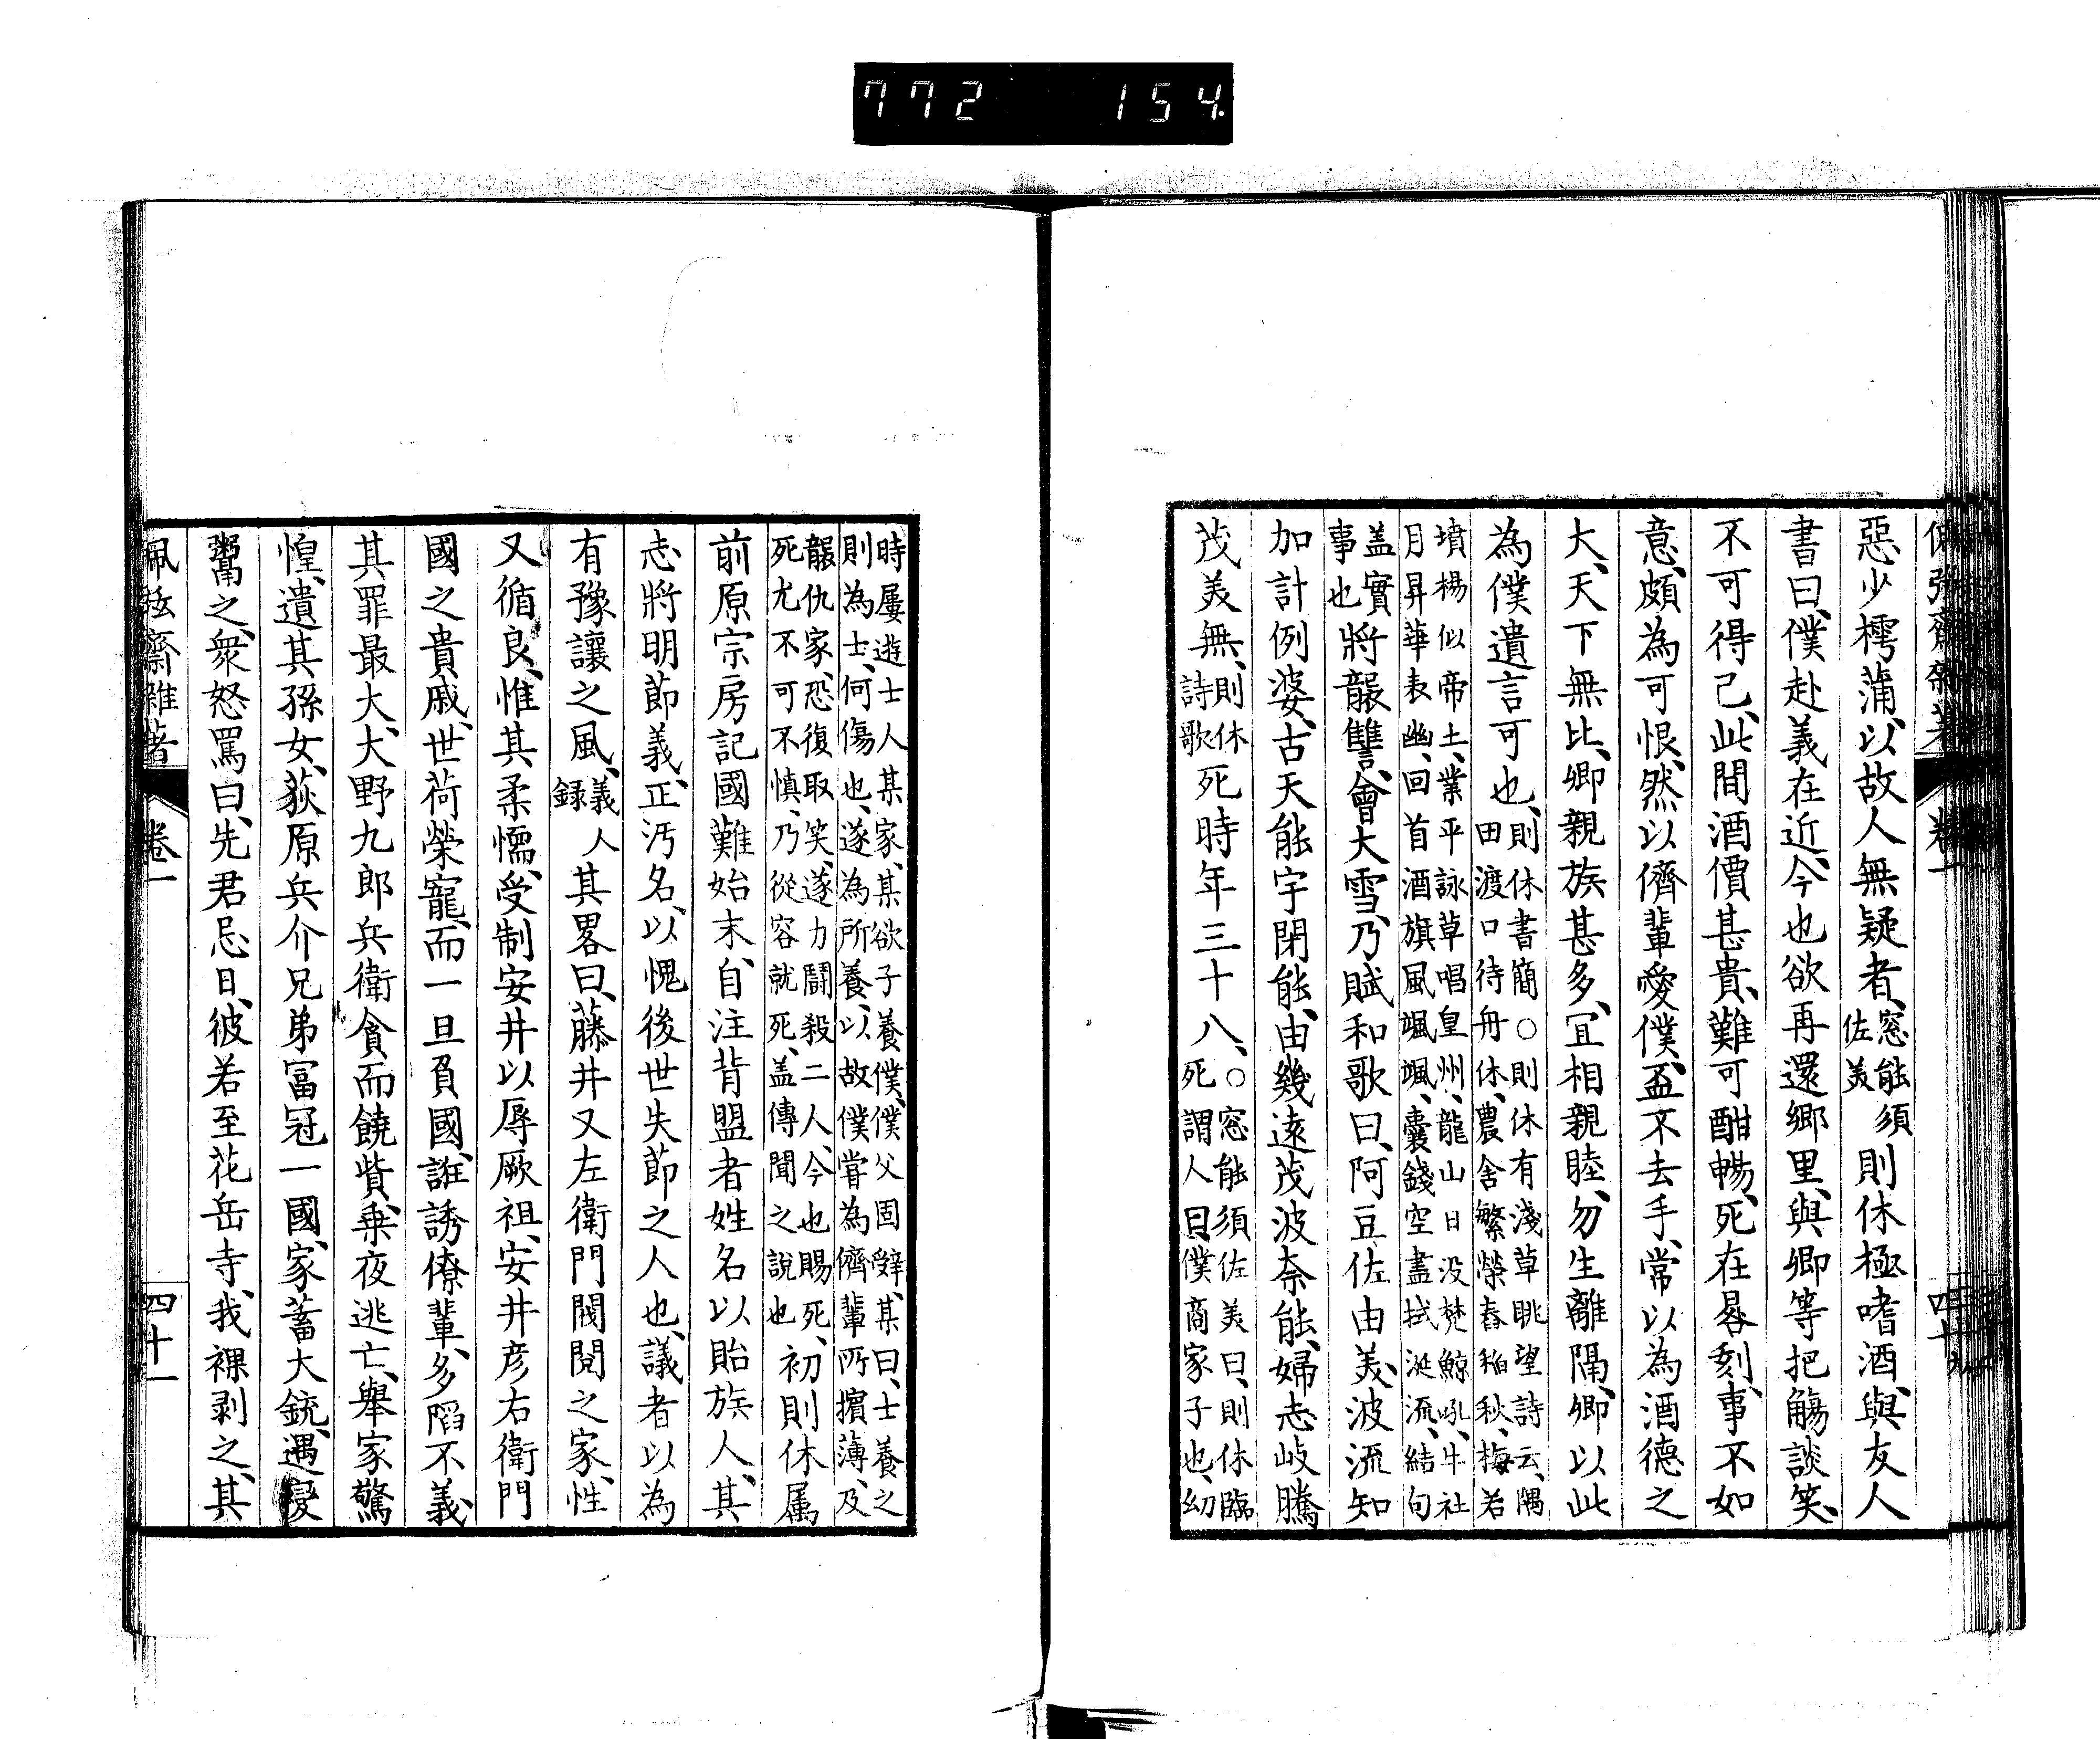 772 154
惡、少樗蒲、以故人無疑者、窓能須佐美 則休極嗜酒、與友人
書曰、僕赴義在近、今也欲再還鄉里、與卿等把觴談笑、
不可得已、此間酒價甚貴、難可酣暢、死在晷刻、事不如
意、頗為可恨、然以儕輩愛僕、盃不去手、常以為酒德之
大、天下無比、卿親族甚多、冝相親睦、勿生離隔、卿以此
為僕遺言可也、則休書簡○則休有淺草眺望詩云、隅田渡口待舟休、農舍繁榮春稻秋、梅若
墳楊似帝土、業平詠草唱皇州、龍山日没焚鯨吼、牛社月昇華表幽、回首酒旗風颯颯、囊錢空盡拭涎流、結句
盖實事也 將報讐、會大雪、乃賦和歌曰、阿豆佐由美、波流知
加計例婆、古天能宇閑能、由幾遠茂波奈能、婦志岐騰
茂美無、則休詩歌 死時年三十八、○窓能須佐美曰、則休臨死謂人曰、僕商家子也、幼
時屢遊士人某家、某欲子養僕、僕父固辤、某曰、士養之則為士、何傷也、遂為所養、以故僕嘗為儕輩所擯薄、及
報仇家、恐復取笑、遂力鬪殺二人、今也賜死、死尤不可不慎、乃從容就死、盖傳聞之說也 初則休属
前原宗房記國難始末、自注背盟者姓名以貽族人、其
志將明節義、正汚名、以愧後世失節之人也、議者以為
有豫讓之風、義人錄 其畧曰、藤井又左衛門閥閱之家、性
又循良、惟其柔懦、受制安井以辱厥祖、安井彦右衛門
國之貴戚、世荷榮寵、而一旦負國、誑誘僚輩、多䧟不義、
其罪最大、大野九郎兵衛貪而饒貲、乗夜逃亡、舉家驚
惶、遺其孫女、荻原兵介兄弟富冠一國、家蓄大銃、遇變
鬻之、衆怒罵曰、先君忌日、彼若至花岳寺、我裸剥之、其
齋雜著 卷一 四十一